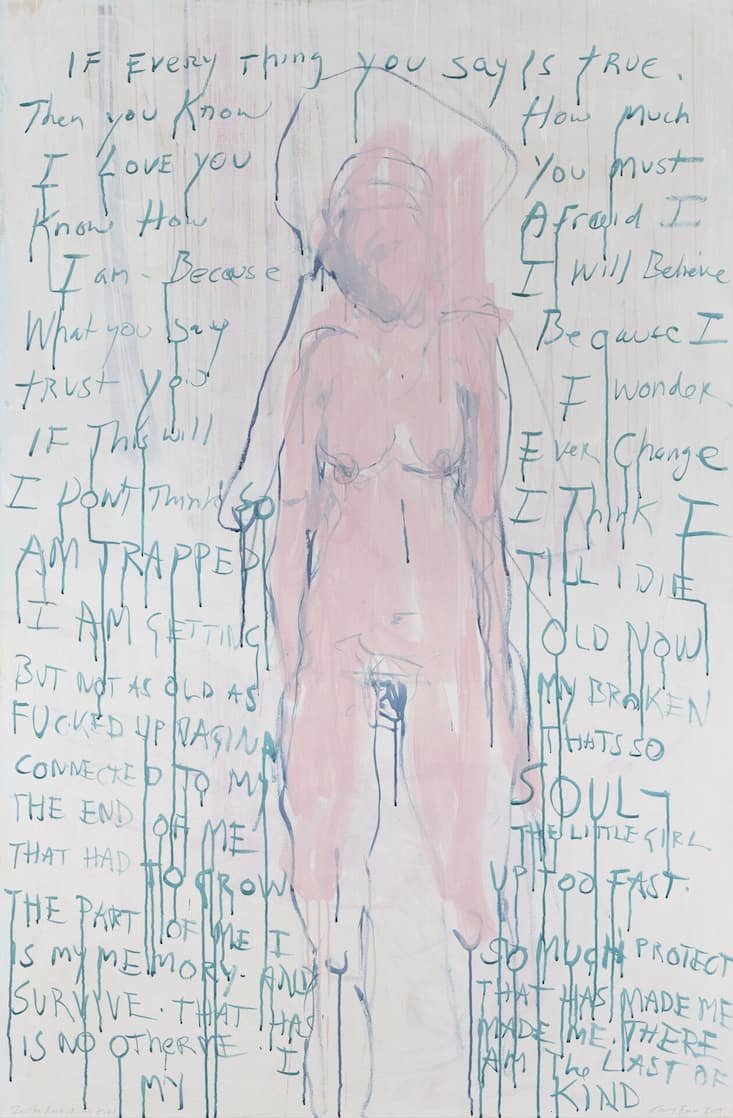 IF Every Thing you say Is True.
Then you Know How Much
I Love You You Must
Know How Afraid I
I am - Because I Will Believe
What you say Because I
trust you I wonder
IF This will Ever Change
I Dont Think So I Think I
AM TRAPPED TILL I DIE
I AM GETTING OLD NOW
BUT NOT AS OLD AS MY BROKEN
FUCKED UP VAGINA THATS SO
CONNECTED TO MY SOUL-
THE END OF ME THE LITTLE GIRL
THAT HAD TO GROW UP TOO FAST.
THE PART OF ME I SO MUCH PROTECT
IS MY MEMORY. AND THAT HAS MADE ME
SURVIVE. THAT HAS MADE ME. THERE
IS NO OTHER ME. I AM The LAST OF
MY KIND